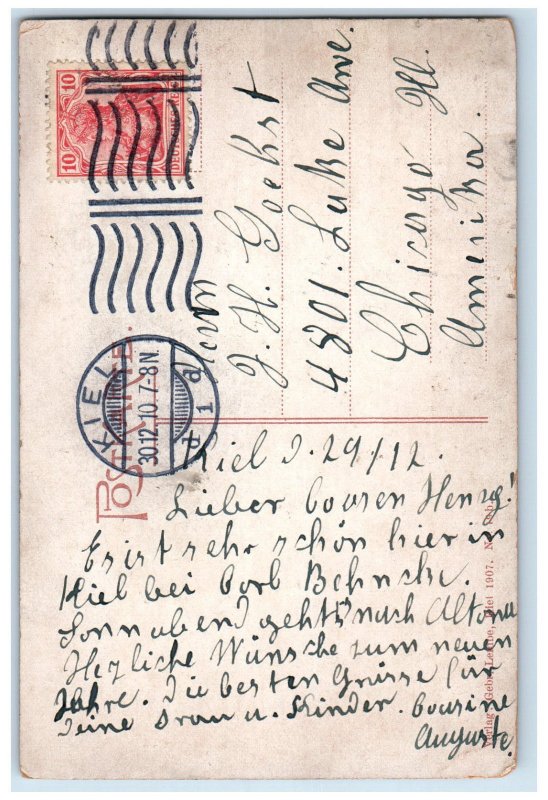 10 10
DEUTSCHES REICH
KIEL
30.12.10 7-8N
d 1 d
POSTKARTE.
Herrn
J. H. Goehst
4801. Lake Ave.
Chicago Ill.
Amerika.
Kiel d. 29/12.
Lieber cousen Henry!
Es ist sehr schön hier in
Kiel bei Corl Behncke.
Sonnabend gehts nach Altona
Herzliche Wünsche zum neuen
Jahre. Die besten Grüsse für
Deine Frau u. Kinder. Cousine
Auguste.
Verlag Gebr. Lempe, Kiel 1907. N